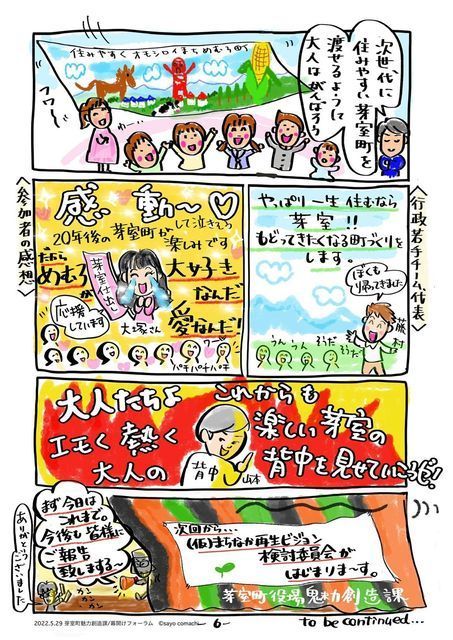 住みやすくオモシロイまちめむろ町
次世代に
住みやすい芽室町を
渡せるように
大人はがんばろう
フワ〜
わー
〈参加者の感想〉
感動〜♡
して泣きそう
20年後の芽室町が
楽しみです
だから
めむろ
が
大好き
なんだ
愛なんだ!
芽室仕出し
大塚さん
応援
しています
ワー
パチパチパチパチ
〈行政若手チーム代表〉
やっぱり一生住むなら
芽室!!
もどってきたくなる町づくりを
します。
ぼくも
帰ってきました
藤村
うんうん
そうだ
そうだ
大人たちよ
エモく熱く
大人の
背中
山本
これからも
楽しい芽室の
背中を見せていこうぜ!
まず今日は
これまで。
今後も皆様に
ご報告
致しまする〜
ありがとうございました
次回から…
(仮)まちなか再生ビジョン
検討委員会が
はじまりま〜す。
芽室町役場魅力創造課
2022.5.29 芽室町魅力創造課/幕開けフォーラム ©sayo comachi
-6-
to be continued…